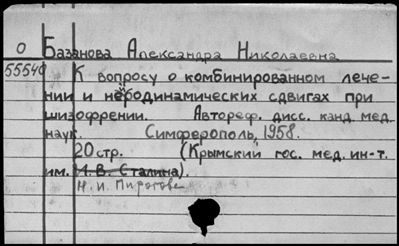 О Базанова Александра Николаевна
55540 К вопросу о комбинированном лече-
нии и нейродинамических сдвигах при
шизофрении. Автореф. дисс. канд. мед.
наук. Симферополь, 1958.
20 стр. (Крымский гос. мед. ин-т.
им. И. В. Сталина).
Н. И. Пирогова